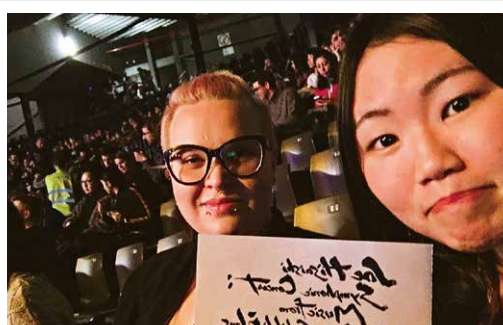 Joe Hisaishi
Symphonic Concert:
Music from